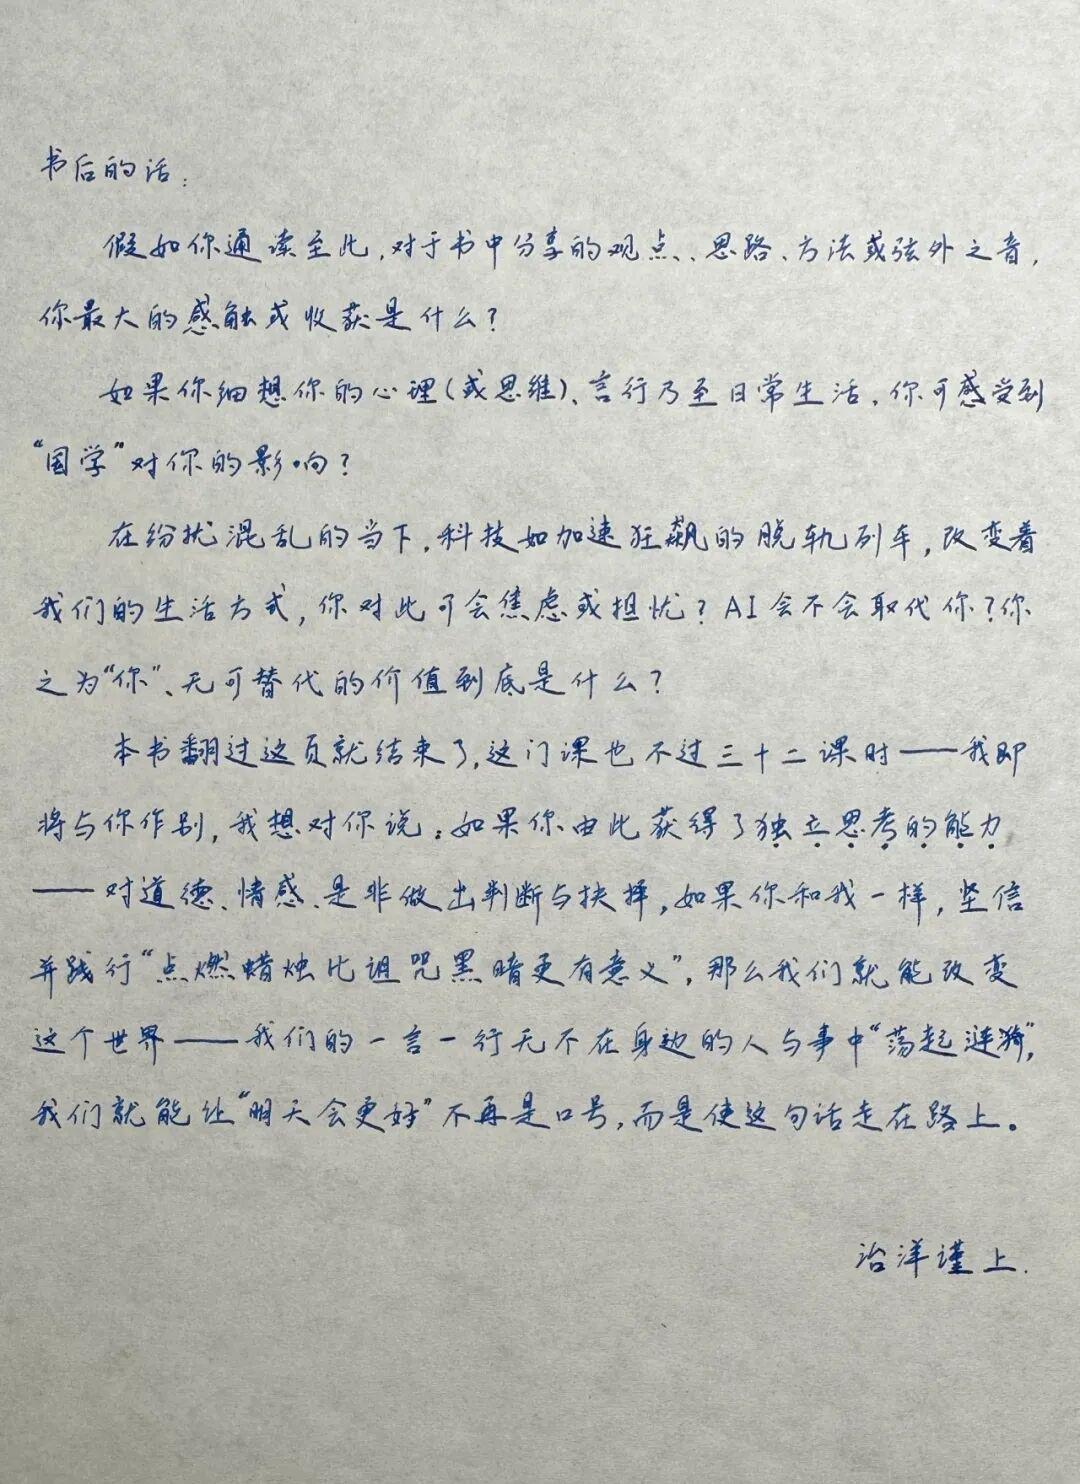 书后的话：
假如你通读至此，对于书中分享的观点、思路、方法或弦外之音，
你最大的感触或收获是什么？
如果你细想你的心理（或思维）、言行乃至日常生活，你可感受到
“国学”对你的影响？
在纷扰混乱的当下，科技如加速狂飙的脱轨列车，改变着
我们的生活方式，你对此可会焦虑或担忧？AI会不会取代你？你
之为“你”、无可替代的价值到底是什么？
本书翻过这页就结束了，这门课也不过三十二课时——我即
将与你作别，我想对你说：如果你由此获得了独立思考的能力
——对道德、情感、是非做出判断与抉择，如果你和我一样，坚信
并践行“点燃蜡烛比诅咒黑暗更有意义”，那么我们就能改变
这个世界——我们的一言一行无不在身边的人与事中“荡起涟漪”，
我们就能让“明天会更好”不再是口号，而是使这句话走在路上。
治洋谨上.